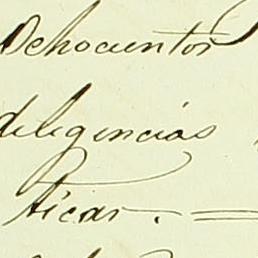 Ochocientos
diligencias
ticas. =